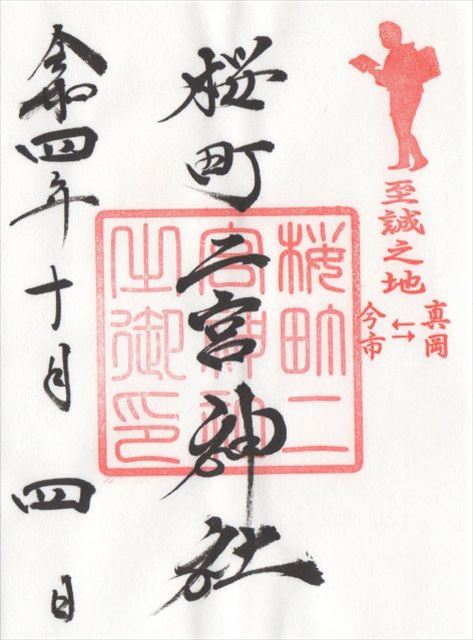 至誠之地
真岡
↔
今市
桜町二宮神社
桜町二
宮神社
之御印
令和四年十月四日